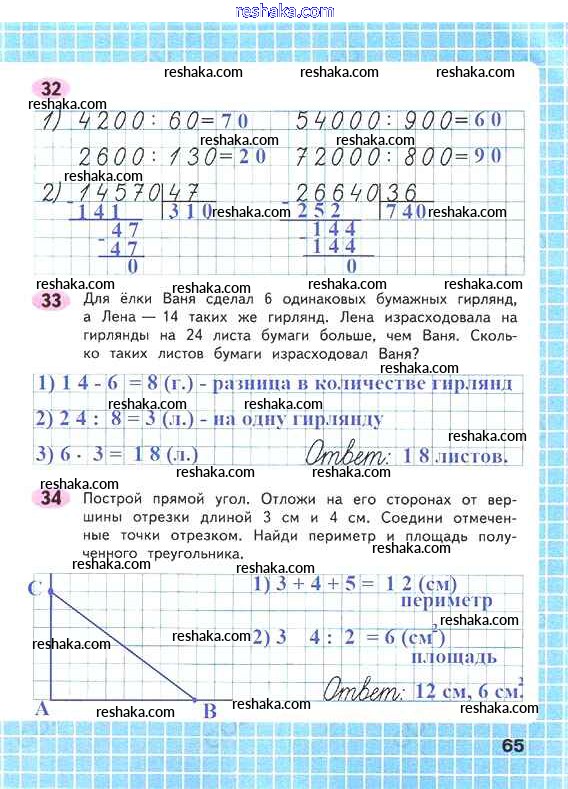 reshaka.com
reshaka.com reshaka.com reshaka.com
32
reshaka.com
1) 4200 : 60= 70 54000 : 900= 60
reshaka.com reshaka.com
2600 : 130= 20 72000 : 800= 90
reshaka.com
2) 14570 47 26640 36
- 141 310 reshaka.com - 252 740 reshaka.com
47 144
reshaka.com
- 47 - 144
0 0
reshaka.com reshaka.com reshaka.com
33 Для ёлки Ваня сделал 6 одинаковых бумажных гирлянд,
reshaka.com
а Лена — 14 таких же гирлянд. Лена израсходовала на
гирлянды на 24 листа бумаги больше, чем Ваня. Сколь-
ко таких листов бумаги израсходовал Ваня?
reshaka.com reshaka.com
1) 14 - 6 = 8 (г.) - разница в количестве гирлянд
reshaka.com reshaka.com
2) 24 : 8 = 3 (л.) - на одну гирлянду
reshaka.com
3) 6 · 3 = 18 (л.) Ответ: 18 листов.
reshaka.com reshaka.com
34 Построй прямой угол. Отложи на его сторонах от вер-
reshaka.com
шины отрезки длиной 3 см и 4 см. Соедини отмечен-
ные точки отрезком. Найди периметр и площадь полу-
reshaka.com
ченного треугольника.
reshaka.com
C 1) 3 + 4 + 5 = 12 (см)
периметр
reshaka.com reshaka.com reshaka.com
2) 3 4 : 2 = 6 (см²)
площадь
reshaka.com
Ответ: 12 см, 6 см².
A B
reshaka.com reshaka.com reshaka.com
65